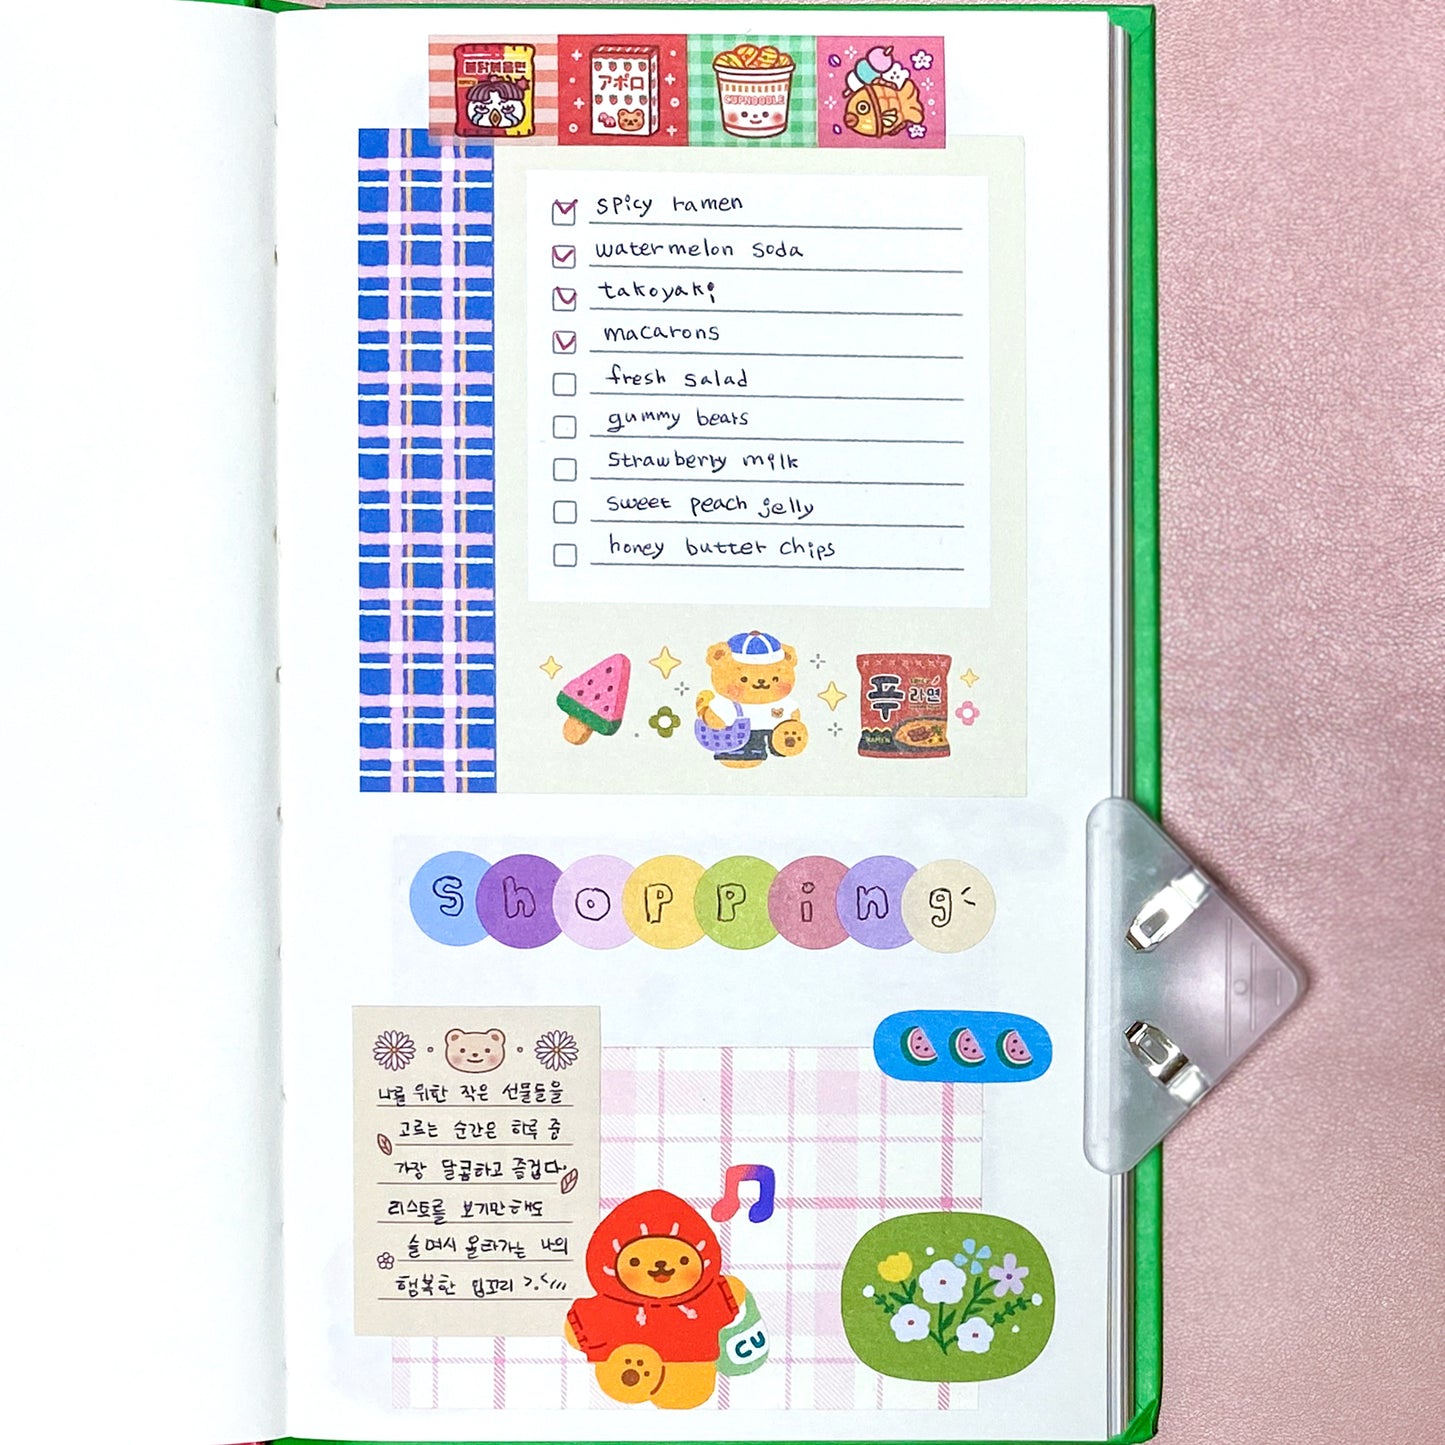 불닭볶음면
アポロ
CUP NOODLE
spicy ramen
watermelon soda
takoyaki
macarons
fresh salad
gummy bears
strawberry milk
sweet peach jelly
honey butter chips
푸
라면
RAMEN
shopping
나를 위한 작은 선물들을
고르는 순간은 하루 중
가장 달콤하고 즐겁다.
리스트를 보기만해도
슬며시 올라가는 나의
행복한 입꼬리 >.<///
CU